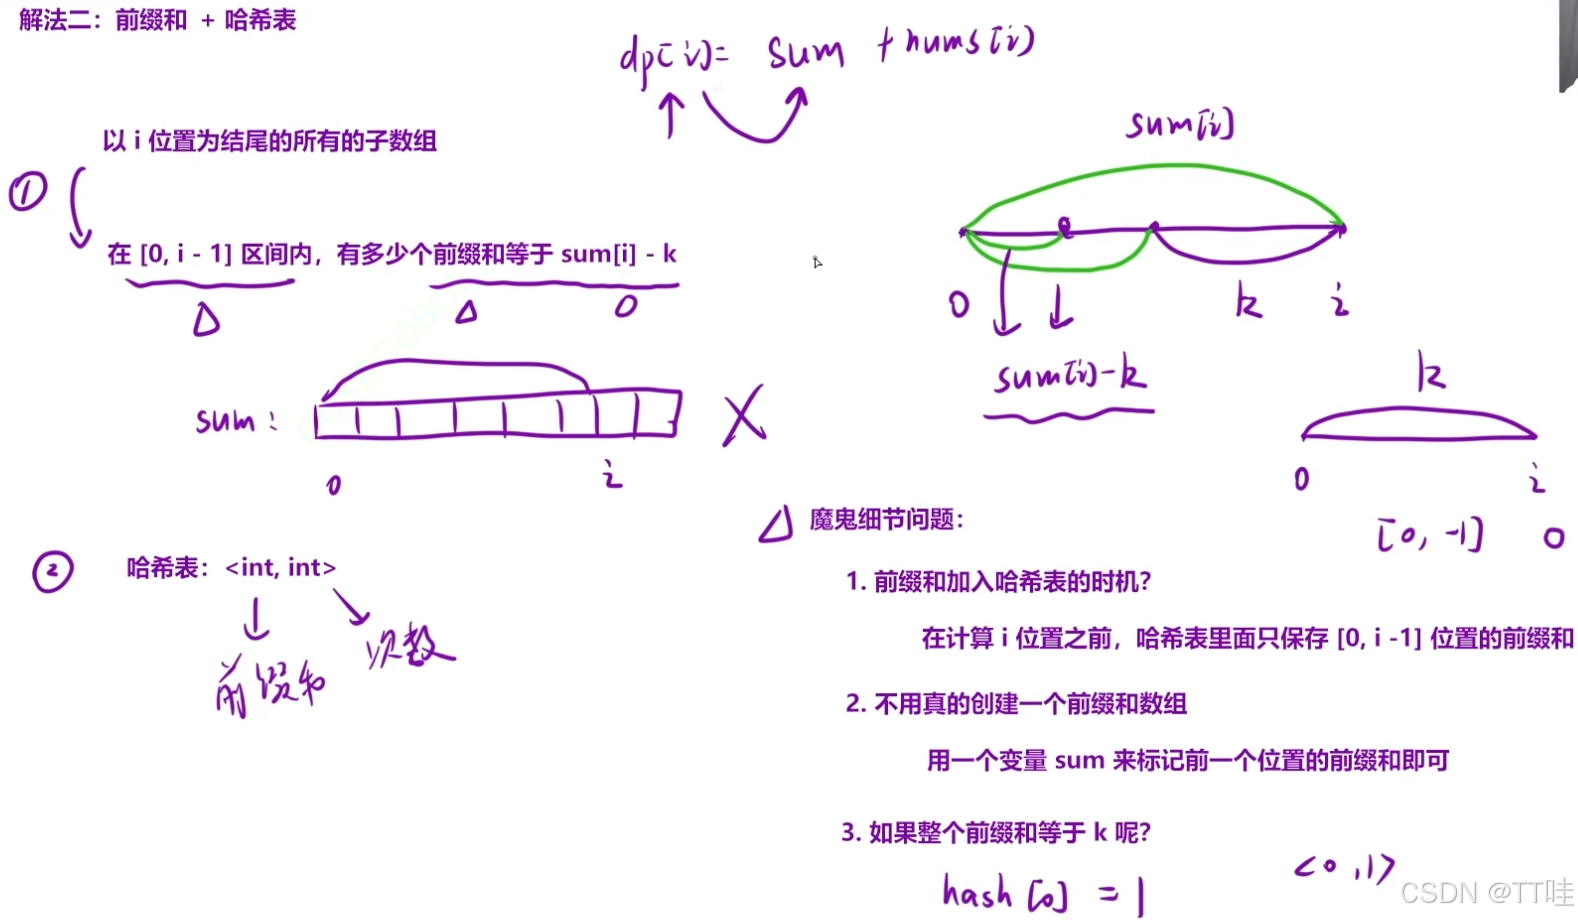 解法二：前缀和 + 哈希表
dp[i]= sum +nums[i]
以 i 位置为结尾的所有的子数组
①
在 [0, i - 1] 区间内，有多少个前缀和等于 sum[i] - k
sum[i]
0 k i
sum[i]-k
sum：
0 i
k
0 i
[0, -1] 0
② 哈希表：<int, int>
前缀和 次数
魔鬼细节问题：
1. 前缀和加入哈希表的时机？
在计算 i 位置之前，哈希表里面只保存 [0, i -1] 位置的前缀和
2. 不用真的创建一个前缀和数组
用一个变量 sum 来标记前一个位置的前缀和即可
3. 如果整个前缀和等于 k 呢？
hash[0] = 1 <0,1>
CSDN @TT哇